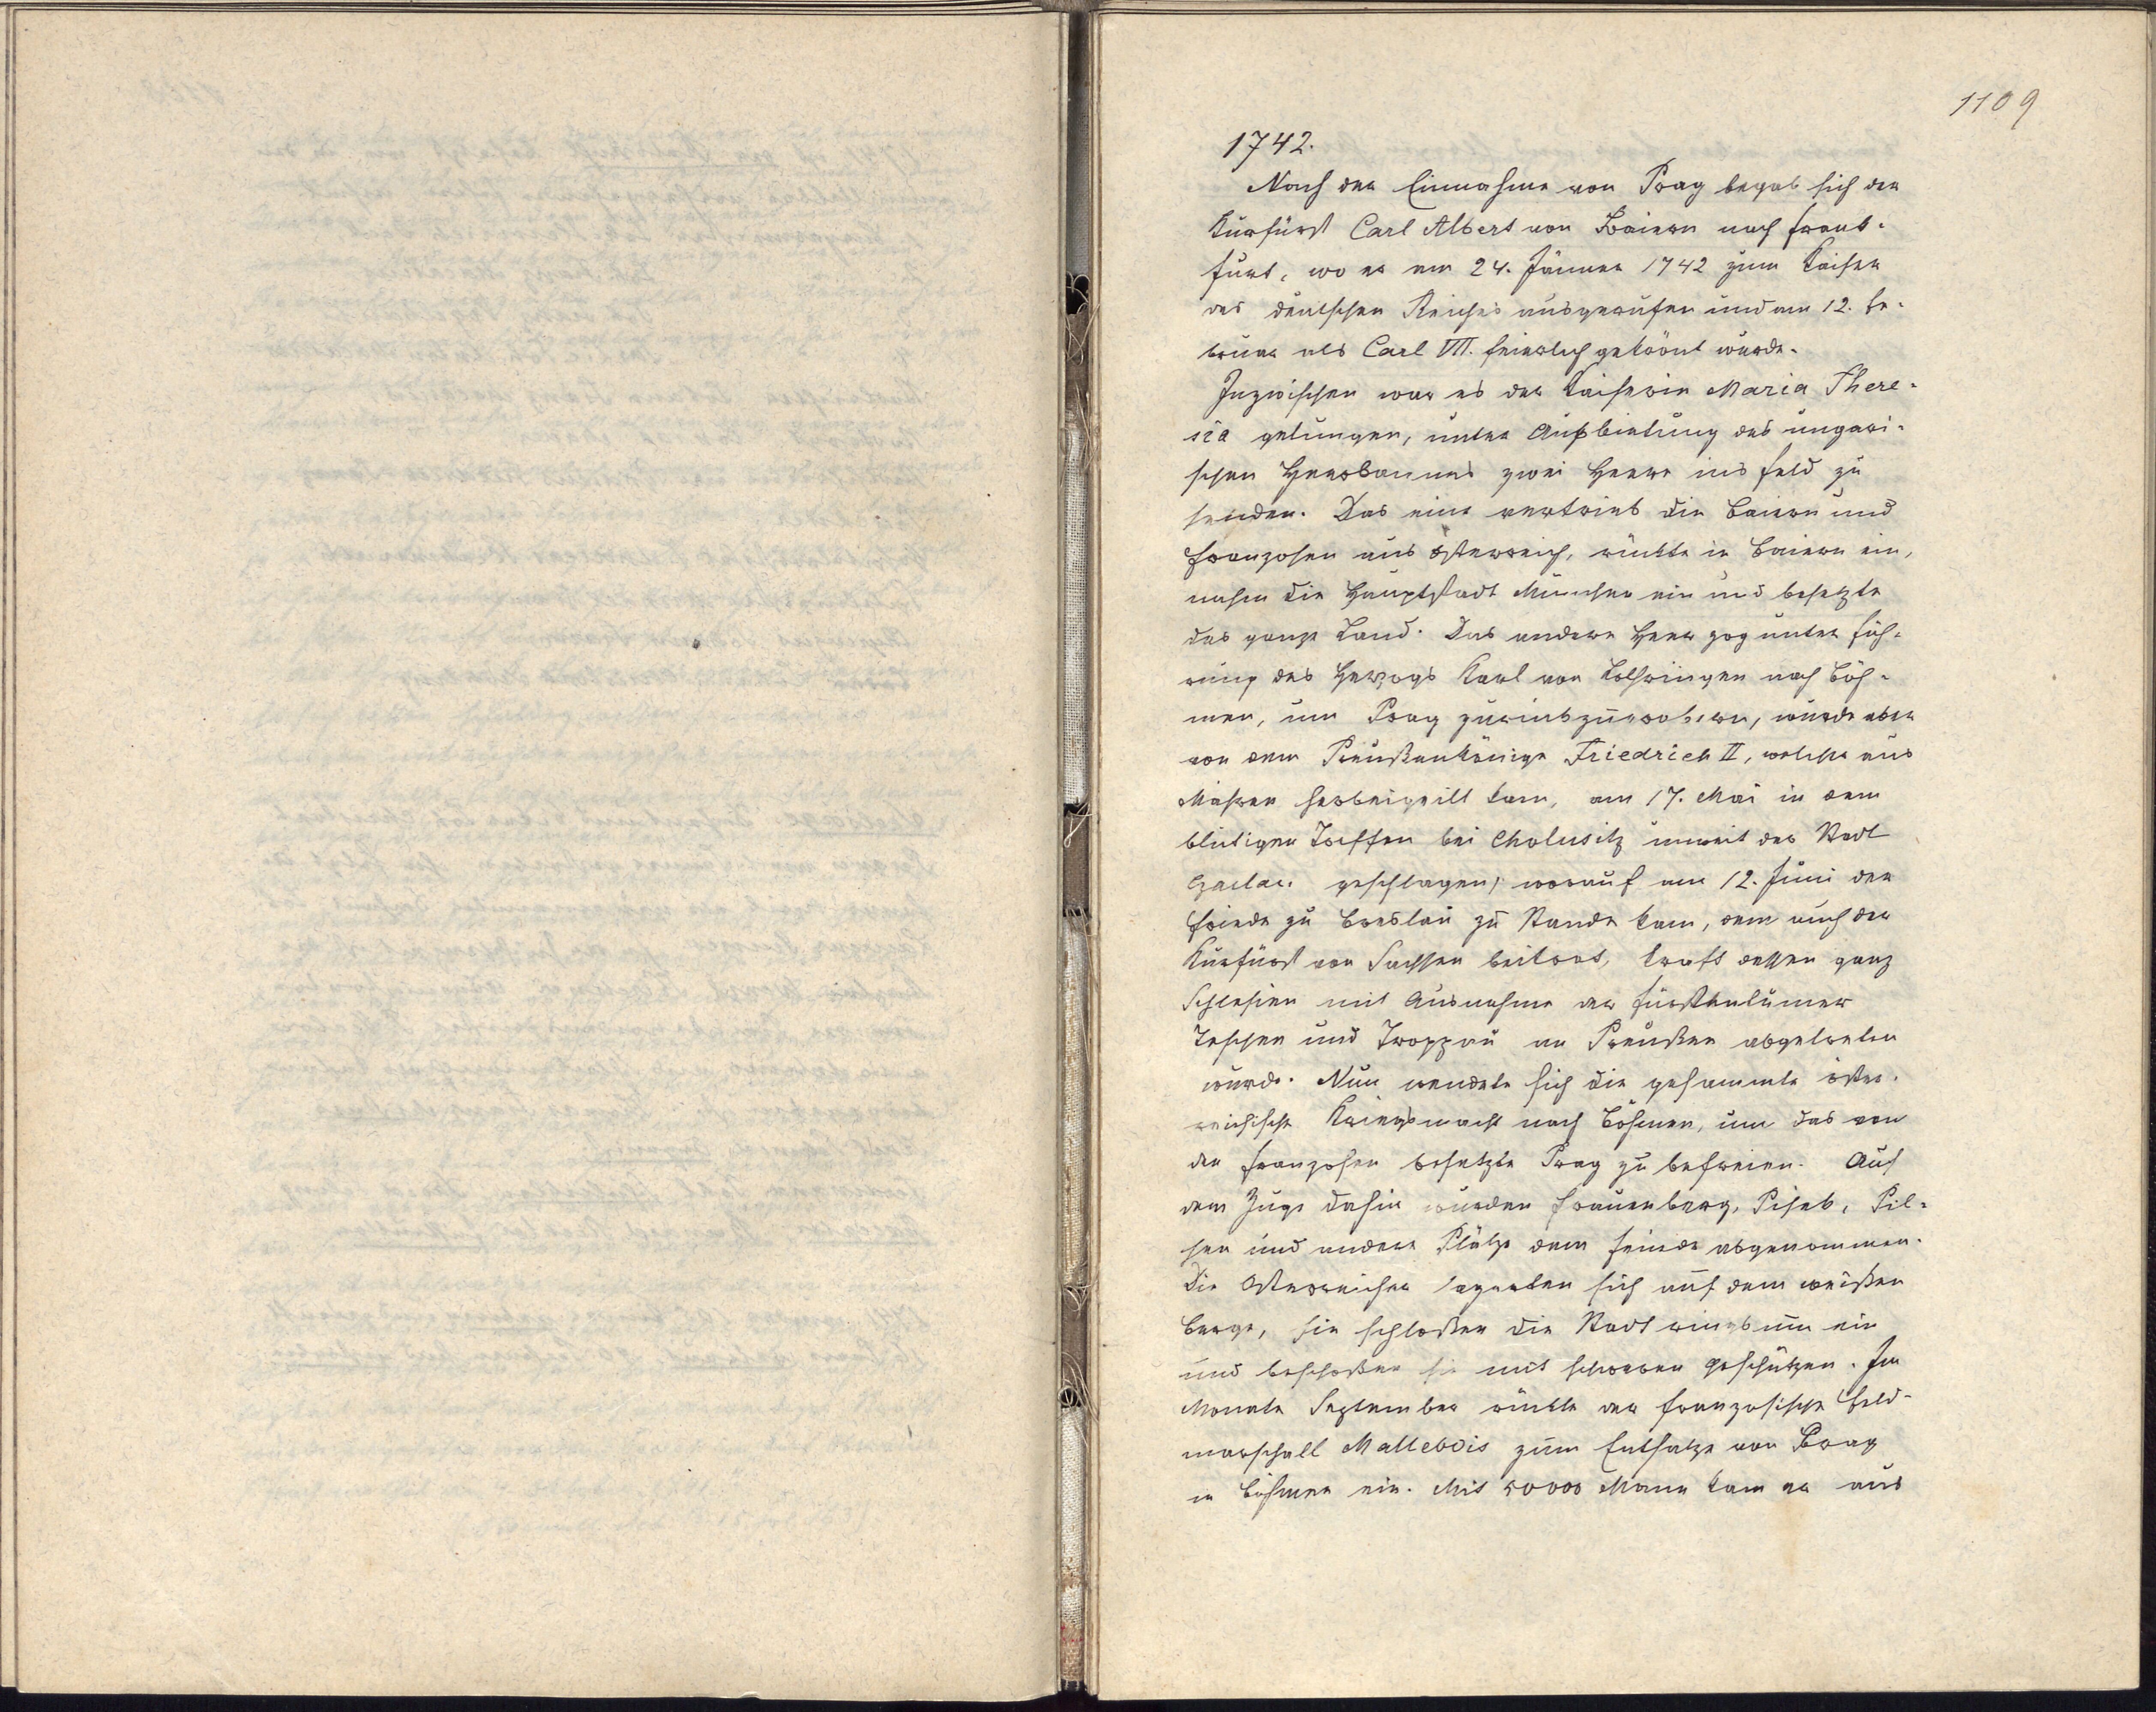 1109
1742.
Nach der Einnahme von Prag begab sich der
Kurfürst Carl Albert von Baiern nach Frank-
furt, wo er am 24. Jänner 1742 zum Kaiser
des deutschen Reiches ausgerufen und am 12. Fe-
bruar als Carl VII. feierlich gekrönt wurde.
Inzwischen war es der Kaiserin Maria There-
sia gelungen, unter Aufbietung des ungari-
schen Heerbannes zwei Heere ins Feld zu
senden. Das eine vertrieb die Baiern und
Franzosen aus Österreich, rückte in Baiern ein,
nahm die Hauptstadt München ein und besetzte
das ganze Land. Das andere Heer zog unter Füh-
rung des Herzogs Karl von Lothringen nach Böh-
men, um Prag zurückzuerobern, wurde aber
von dem Preußenkönige Friedrich II, welcher aus
Mähren herbeigeilt kam, am 17. Mai in dem
blutigen Treffen bei Cholusitz unweit der Stadt
Czaslau geschlagen, worauf am 12. Juni der
Friede zu Breslau zu Stande kam, dem auch der
Kurfürst von Sachsen beitrat, kraft dessen ganz
Schlesien mit Ausnahme der Fürstentümer
Teschen und Troppau an Preußen abgetreten
wurde. Nun wendete sich die gesammte öster-
reichische Kriegsmacht nach Böhmen, um das von
den Franzosen besetzte Prag zu befreien. Auf
dem Zuge dahin wurden Frauenberg, Pisek, Pil-
sen und andere Plätze dem Feinde abgenommen.
Die Österreicher lagerten sich auf dem weißen
Berge, sie schloßen die Stadt ringsum ein
und beschoßen sie mit schweren Geschützen. Im
Monate September rückte der französische Feld-
marschall Mallebois zum Entsatze von Prag
in Böhmen ein. Mit 50000 Mann kam er aus